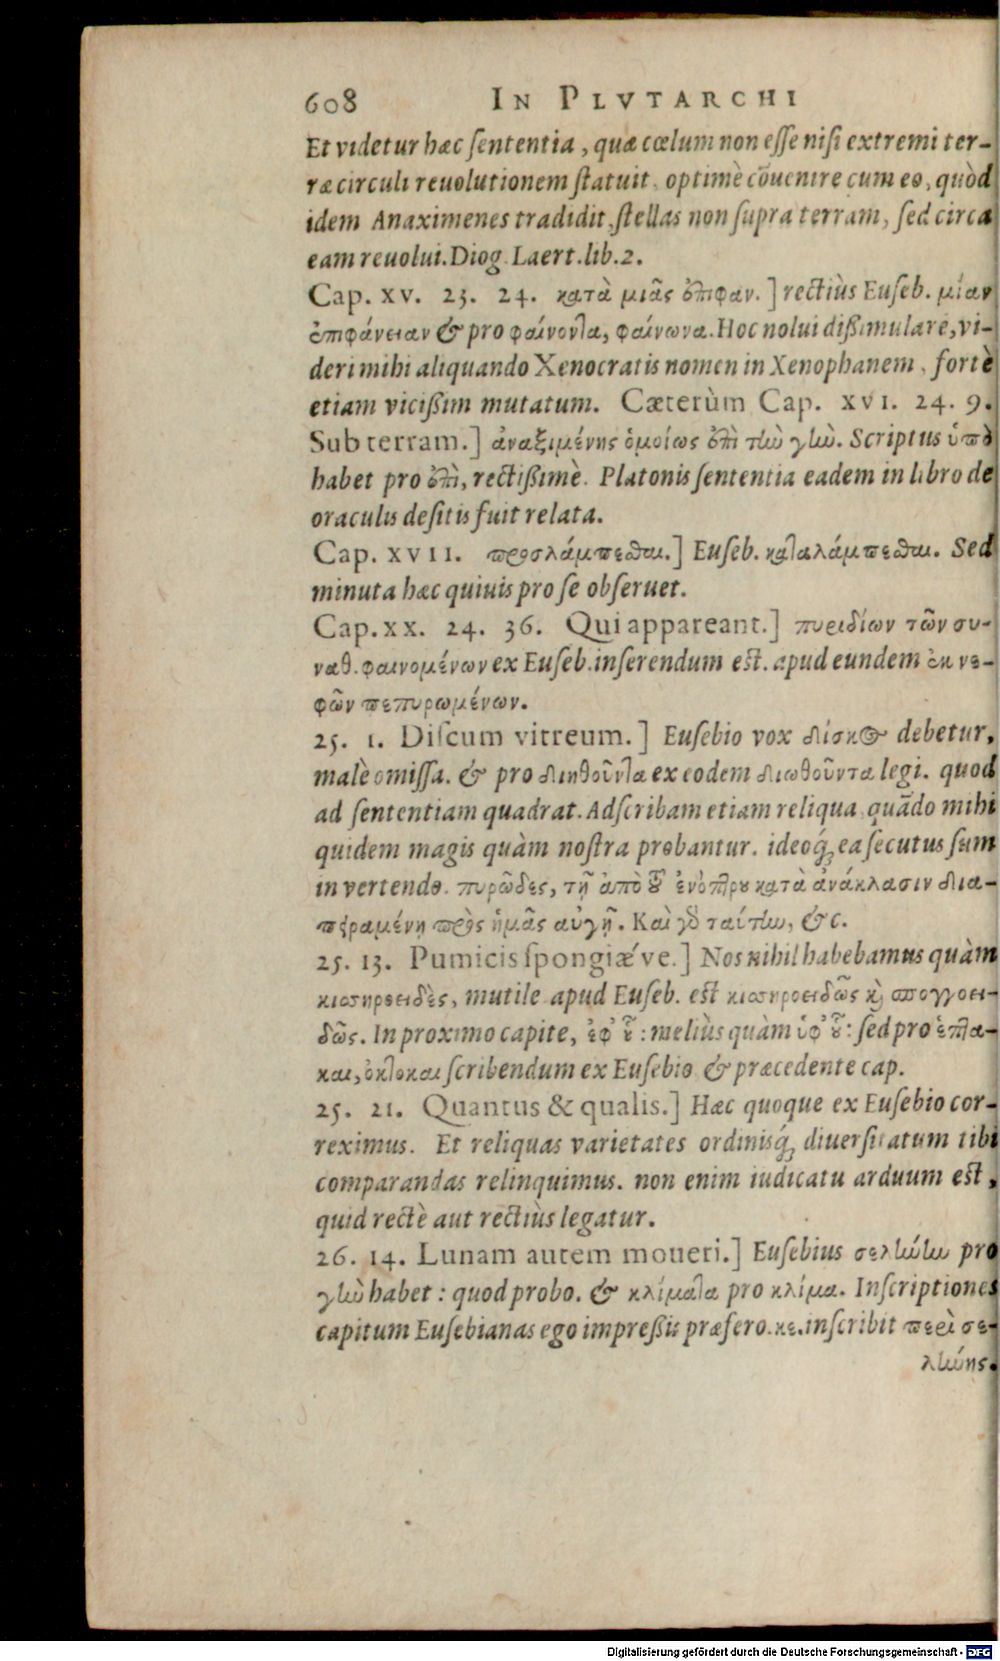 608 IN PLVTARCHI
Et videtur hæc ſententia, quæ cœlum non eſſe niſi extremi ter-
ræ circuli reuolutionem ſtatuit, optimè cõuenire cum eo, quòd
idem Anaximenes tradidit, ſtellas non ſupra terram, ſed circa
eam reuolui. Diog. Laert. lib. 2.
Cap. XV. 23. 24. κατὰ μιᾶς ἐπιφαν.] rectiùs Euſeb. μίαν
ἐπιφάνειαν & pro φαίνοντα, φαίνωνα. Hoc nolui dißimulare, vi-
deri mihi aliquando Xenocratis nomen in Xenophanem, fortè
etiam vicißim mutatum. Cæterùm Cap. XVI. 24. 9.
Sub terram.] ἀναξιμένης ὁμοίως ἐπὶ τὴν γῆν. Scriptus ὑπὸ
habet pro ἐπὶ, rectißimè. Platonis ſententia eadem in libro de
oraculis deſitis fuit relata.
Cap. XVII. προσλάμπεσθαι.] Euſeb. καταλάμπεσθαι. Sed
minuta hæc quiuis pro ſe obſeruet.
Cap. XX. 24. 36. Qui appareant.] πυριδίων τῶν συ-
ναθ. φαινομένων ex Euſeb. inſerendum eſt. apud eundem ἐκ νε-
φῶν πεπυρωμένων.
25. 1. Diſcum vitreum.] Euſebio vox δίσκος debetur,
malè omiſſa. & pro διηθοῦντα ex eodem διωθοῦντα legi. quod
ad ſententiam quadrat. Adſcribam etiam reliqua, quãdo mihi
quidem magis quàm noſtra probantur. ideoq́; ea ſecutus ſum
in vertendo. πυρῶδες, τῇ ἀπὸ τοῦ ἐνόπτρου κατὰ ἀνάκλασιν δια-
πειραμένη πρὸς ἡμᾶς αὐγῇ. Καὶ γὰρ ταύτην, &c.
25. 13. Pumicis ſpongiǽ ve.] Nos nihil habebamus quàm
κισηροειδὲς, mutile. apud Euſeb. eſt κισηροειδῶς καὶ σπογγοει-
δῶς. In proximo capite, ἐφ᾽ οὗ: meliùs quàm ὑφ᾽ οὗ: ſed pro ἑπτα-
και, ὀκτοκαι ſcribendum ex Euſebio & præcedente cap.
25. 21. Quantus & qualis.] Hæc quoque ex Euſebio cor-
reximus. Et reliquas varietates ordinisq́; diuerſitatum tibi
comparandas relinquimus. non enim iudicatu arduum eſt,
quid rectè aut rectiùs legatur.
26. 14. Lunam autem moueri.] Euſebius σελήνην pro
γῆν habet: quod probo. & κλίματα pro κλίμα. Inſcriptiones
capitum Euſebianas ego impreßis præfero. κε. inſcribit περὶ σε-
λήνης.
Digitalisierung gefördert durch die Deutsche Forschungsgemeinschaft - DFG